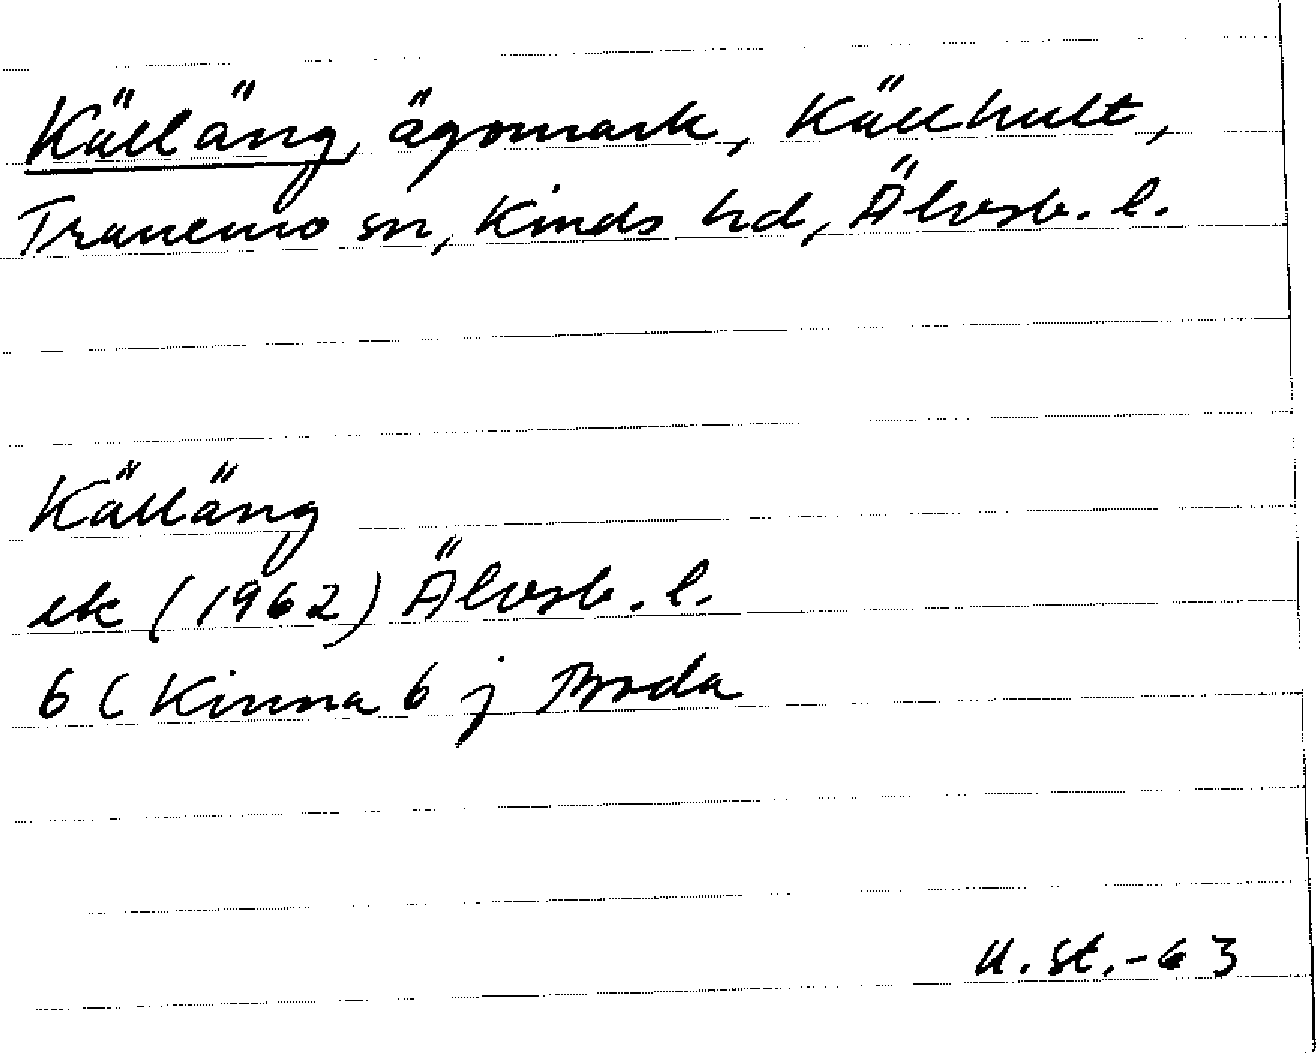 Källäng, ägomark, Källhult,
Tranemo sn, Kinds hd, Älvsb. l.
Källäng
ek (1962) Älvsb. l.
6 (Kinna 6 j Broda
U. St. -63